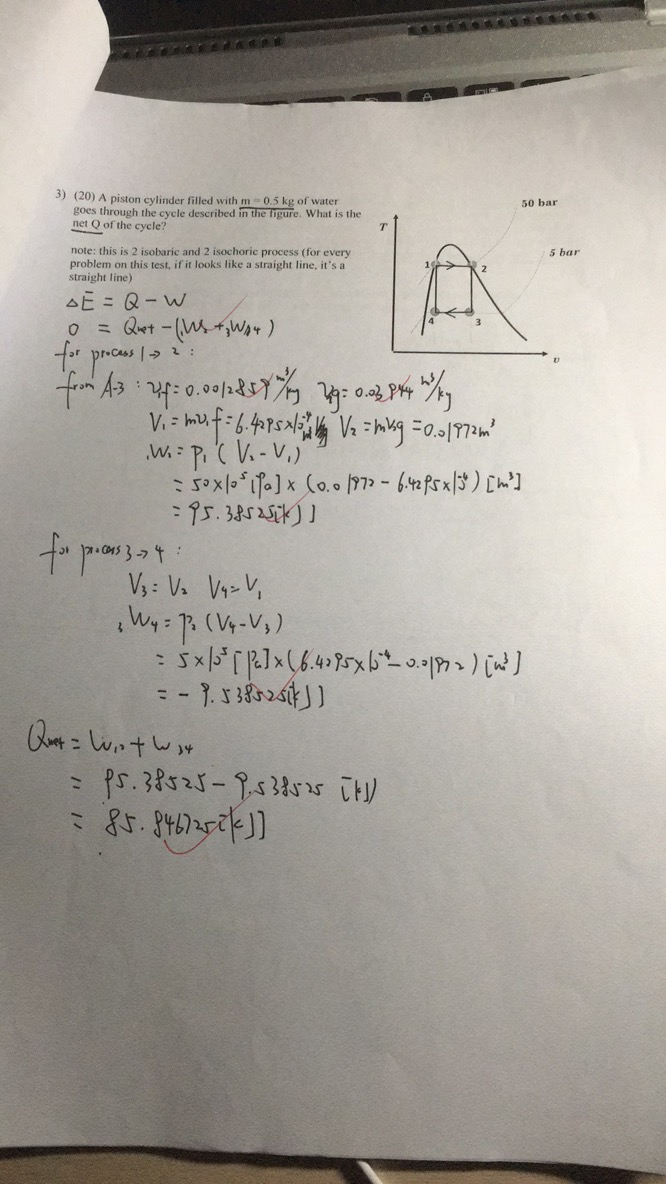 3) (20) A piston cylinder filled with m = 0.5 kg of water
goes through the cycle described in the figure. What is the
net Q of the cycle?
note: this is 2 isobaric and 2 isochoric process (for every
problem on this test, if it looks like a straight line, it's a
straight line)
50 bar
T
5 bar
1
2
4
3
υ
ΔE = Q - W
0 = Qnet - (₁W₂ + ₃W₄)
for process 1→2 :
from A-3 : υ₁f = 0.0012859 m³/kg υg = 0.03944 m³/kg
V₁ = mυ₁f = 6.4295×10⁻⁴ m³ V₂ = mυ₂g = 0.01972m³
₁W₂ = P₁ ( V₂ - V₁ )
= 50×10⁵ [Pa] × (0.01972 - 6.4295×10⁻⁴) [m³]
= 95.38525[kJ]
for process 3→4 :
V₃ = V₂ V₄ = V₁
₃W₄ = P₂ (V₄ - V₃)
= 5×10⁵ [Pa] × (6.4295×10⁻⁴ - 0.01972) [m³]
= - 9.538525[kJ]
Qnet = W₁₂ + W₃₄
= 95.38525 - 9.538525 [kJ]
= 85.846725[kJ]